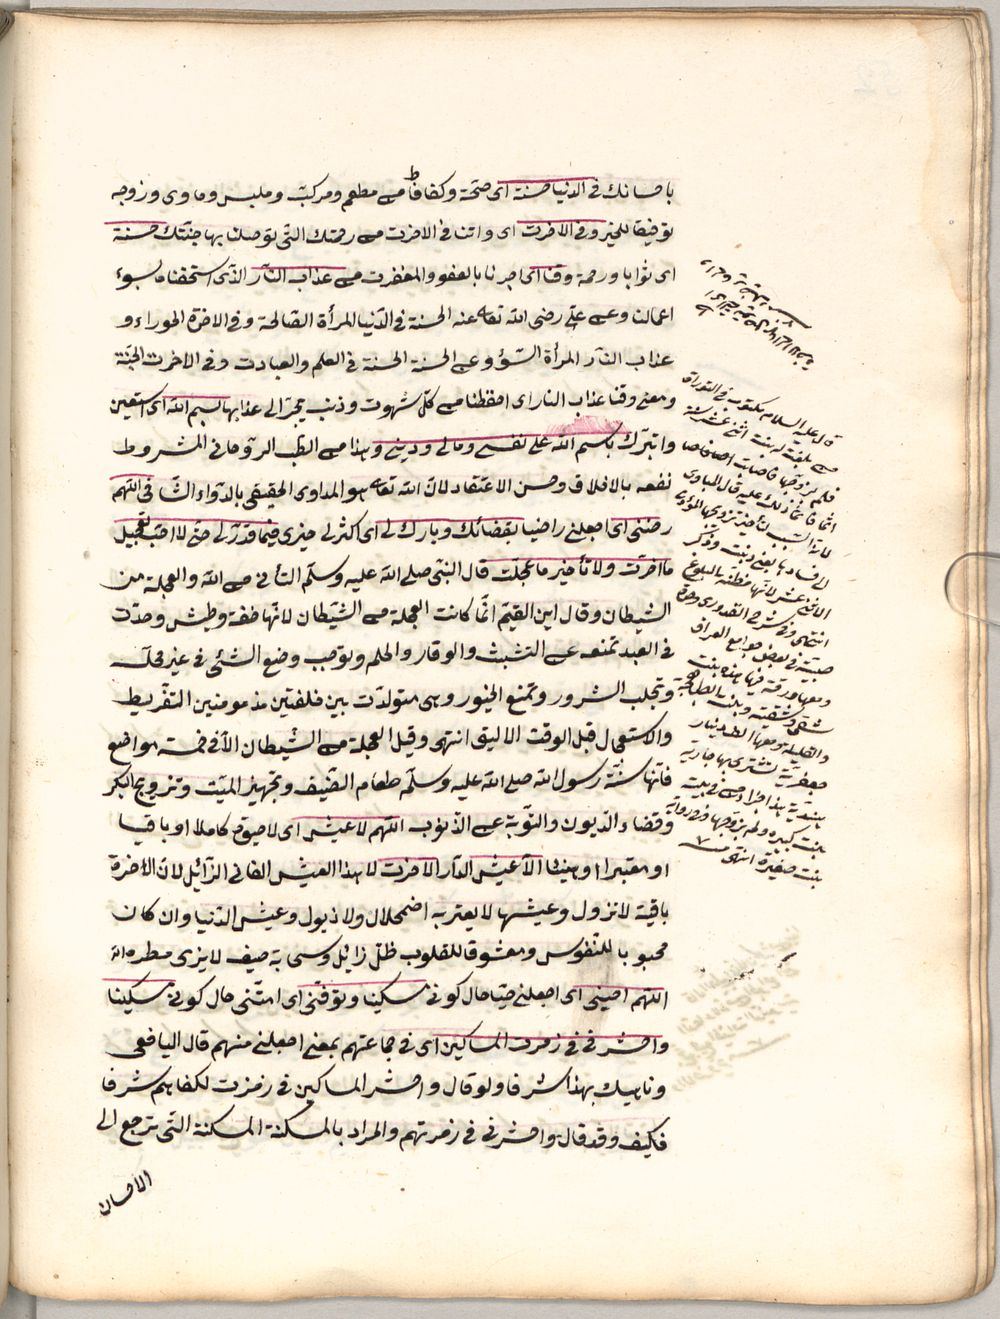 باحسانك في الدنيا حسنة اى صحّة وكفافا من مطعم ومركب وملبس ومأوى وزوجه
توفيقا للخير وفي الاخرت اى واتنا في الاخرت من رحمتك التّى توصلنا بها جنّتك حسنة
اى ثوابا ورحمة وقنا اى اجرنا بالعفو والمغفرت من عذاب النّار الذّى استحقناه بسوء
اعمالنا وعن علىّ رضى الله تعالى عنه الحسنة في الدّنيا المرأة الصّالحة وفي الاخرة الحوراء و
عذاب النّار المرأة السّوء وعن الحسن الحسنة في العلم والعبادت وفي الاخرت الجنّة
ومعنى وقنا عذاب النار اى احفظنا من كلّ شهوت وذنب يجرّ الى عذابها بسم الله اى استعين
واتبرّك باسم الله على نفسى ومالى ودينى وهذا من الطبّ الروحانى المشروط
نفعه بالاخلاص وحسن الاعتقاد لانّ الله تعالى هو المداوى الحقيقى بالدّواء الشّافى اللّهم
رضّنى اى اجعلنى راضيا بقضائك وبارك لى اى اكثر لى خيرى فيما قدّر لى حتّى لا احبّ تعجيل
ما اخرّت ولا تأخير ما عجّلت قال النبىّ صلى الله عليه وسلّم التأنى من الله والعجلة من
الشيطان وقال ابن القيّم انّما كانت العجلة من الشّيطان لانّها خفّة وطيش وحدّت
في العبد تمنعه عن التثبت والوقار والحلم وتوجب وضع الشئ في غير محلّه
وتجلب الشرور وتمنع الخيور وهى متولّدت بين خلقتين مذمومتين التفريط
والاستعجال قبل الوقت الاليق انتهى وقيل العجلة من الشّيطان الّا في خمسة مواضع
فانّها سنّة رسول الله صلى الله عليه وسلّم طعام الضّيف وتجهيز الميّت وتزويج البكر
وقضاء الدّيون والتّوبة عن الذّنوب اللّهم لا عيش اى لا حيوة كاملا او باقيا
او معتبرا او هنيئا الّا عيش الدّار الاخرت لا هذا العيش الفانى الزّائل لانّ الأخرة
باقية لا تزول وعيشها لا يعتريه اضمحلال ولا ذبول وعيش الدّنيا وان كان
محبوبا للنّفوس ومعشوقا للقلوب ظلّ زائل وسحابة صيف لا يرى مطره
اللّهم احينى اى اجعلنى حيّا حال كونى مسكينا وتوفّنى اى امتنى حال كونى مسكينا
واحشرنى في زمرت المساكين اى في جماعتهم بمعنى اجعلنى منهم قال اليافعى
وناهيك بهذا شرفا ولو قال واحشر المساكين في زمرتى لكفاهم شرفا
فكيف وقد قال واحشرنى في زمرتهم والمراد بالمسكنة المسكنة التّى ترجع الى
الاخبات
قال عليه السلام مكتوب في التوراة
من بلغت له بنت اثنى عشر سنة
فلم يزوجها فاصابت اثما
فانّما ذلك عليه قال المناوى
لانه السبب لتأخير تزويجها المؤدى
الى فسادها يعنى بنت وذكر
الاثنى عشر لانّها مظنّة البلوغ
انتهى وفي شرح القدورى
صبية في بعض جوامع العراق
ومعها ورقة فيها هذه بنت
شقى وشقية
ومعها الف دينار
جعفرية تشترى بها جارية
هندية هذا جزاء من في بيته
بنت كبيرة ولم يزوجها وفي رواية
بنت صغيرة انتهى